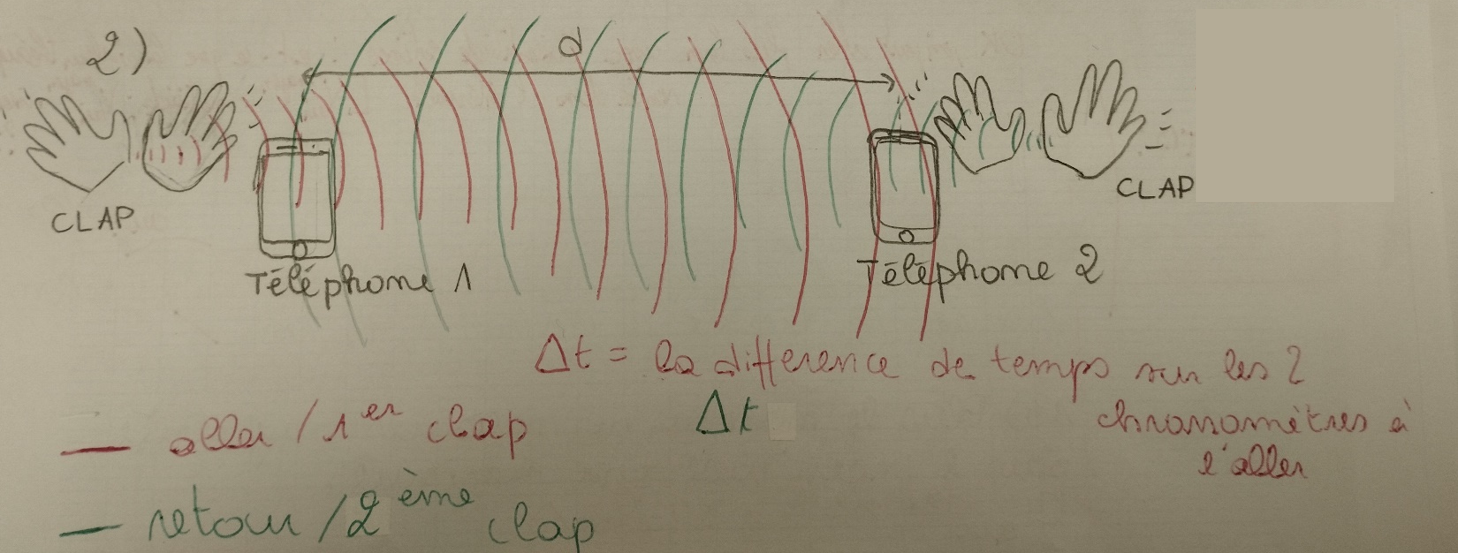 2)
d
CLAP
CLAP
Téléphone 1
Téléphone 2
Δt = la difference de temps sur les 2
chronomètres à
l'aller
Δt
— aller / 1er clap
— retour / 2ème clap